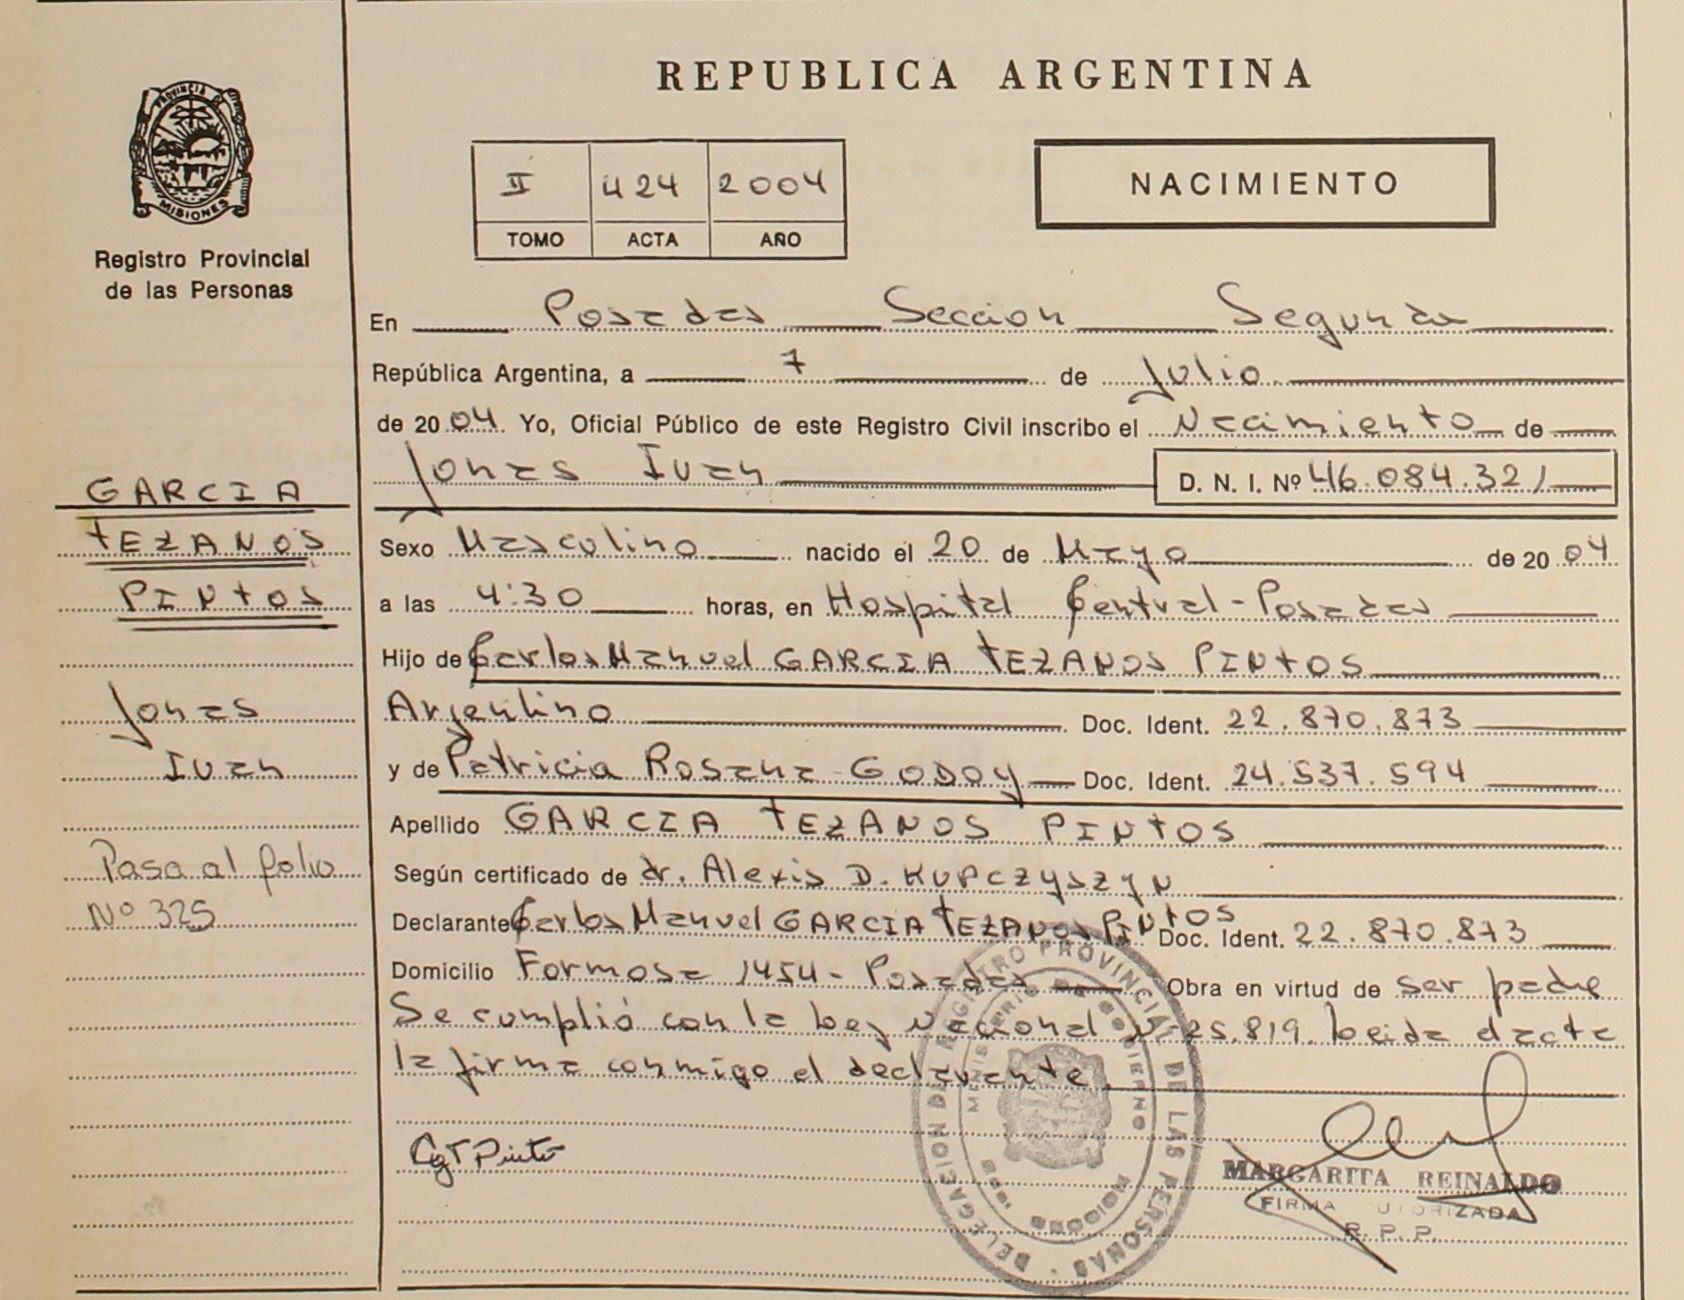 REPUBLICA ARGENTINA
PROVINCIA DE
MISIONES
Registro Provincial
de las Personas
II 424 2004
TOMO ACTA AÑO
NACIMIENTO
En Posadas Seccion Segunda
República Argentina, a 7 de Julio
de 2004 Yo, Oficial Público de este Registro Civil inscribo el Nacimiento de
Jonas Ivan D. N. I. Nº 46.084.321
GARCIA
TEZANOS
PINTOS
Jonas
Ivan
Pasa al folio
Nº 325
Sexo Masculino nacido el 20 de Mayo de 2004
a las 4:30 horas, en Hospital Central - Posadas
Hijo de Carlos Manuel GARCIA TEZANOS PINTOS
Argentino Doc. Ident. 22.870.873
y de Patricia Rosana GODOY Doc. Ident. 24.537.594
Apellido GARCIA TEZANOS PINTOS
Según certificado de dr. Alexis D. KUPCZYSZYN
Declarante Carlos Manuel GARCIA TEZANOS PINTOS Doc. Ident. 22.870.873
Domicilio Formosa 1454 - Posadas Obra en virtud de ser padre
Se cumplió con la Ley Nacional Nº 25.819. Leida el acta
la firma conmigo el declarante.
CGT Pinto
DELEGACION DEL REGISTRO PROVINCIAL DE LAS PERSONAS
MINISTERIO DE GOBIERNO
MISIONES
MARGARITA REINALDO
FIRMA AUTORIZADA
R. P. P.